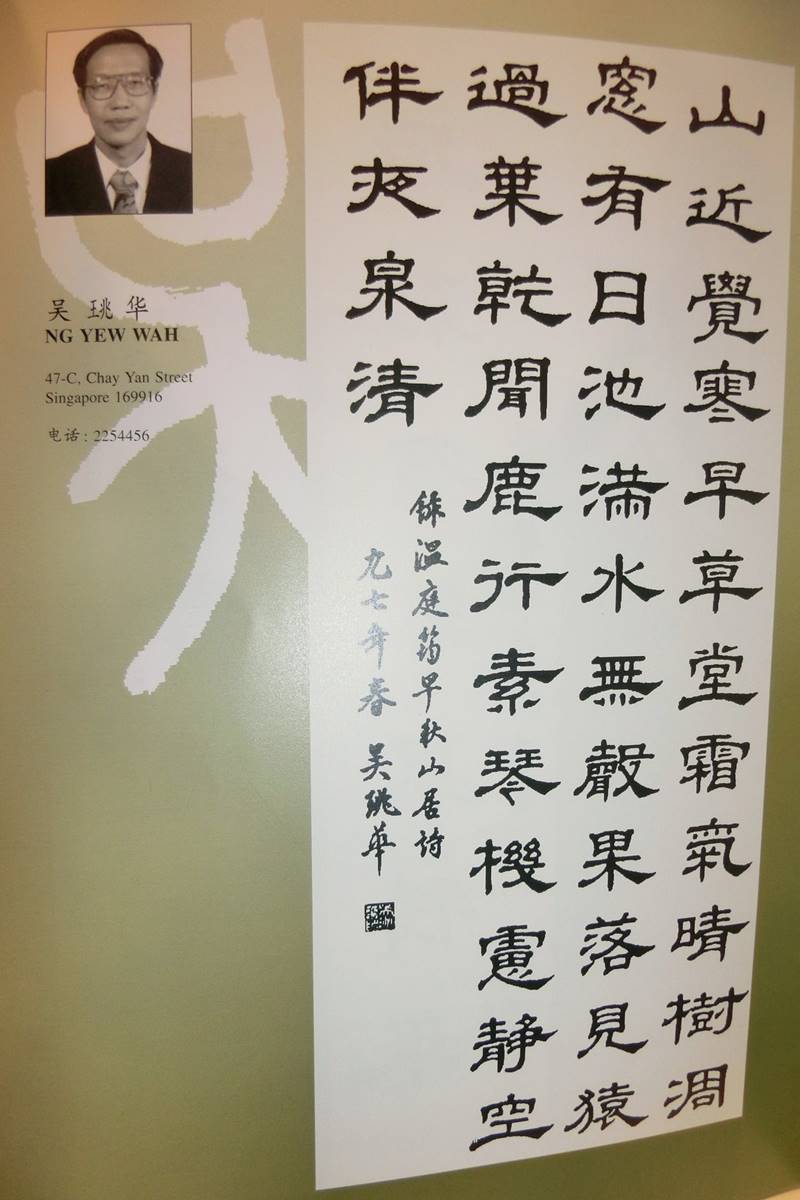 吴珧华
NG YEW WAH
47-C, Chay Yan Street
Singapore 169916
电话 : 2254456
山近覺寒早草堂霜氣晴樹凋
窓有日池満水無聲果落見猿
過葉乾聞鹿行素琴機慮靜空
伴夜泉清
錄温庭筠早秋山居詩
九七年春 吴珧華